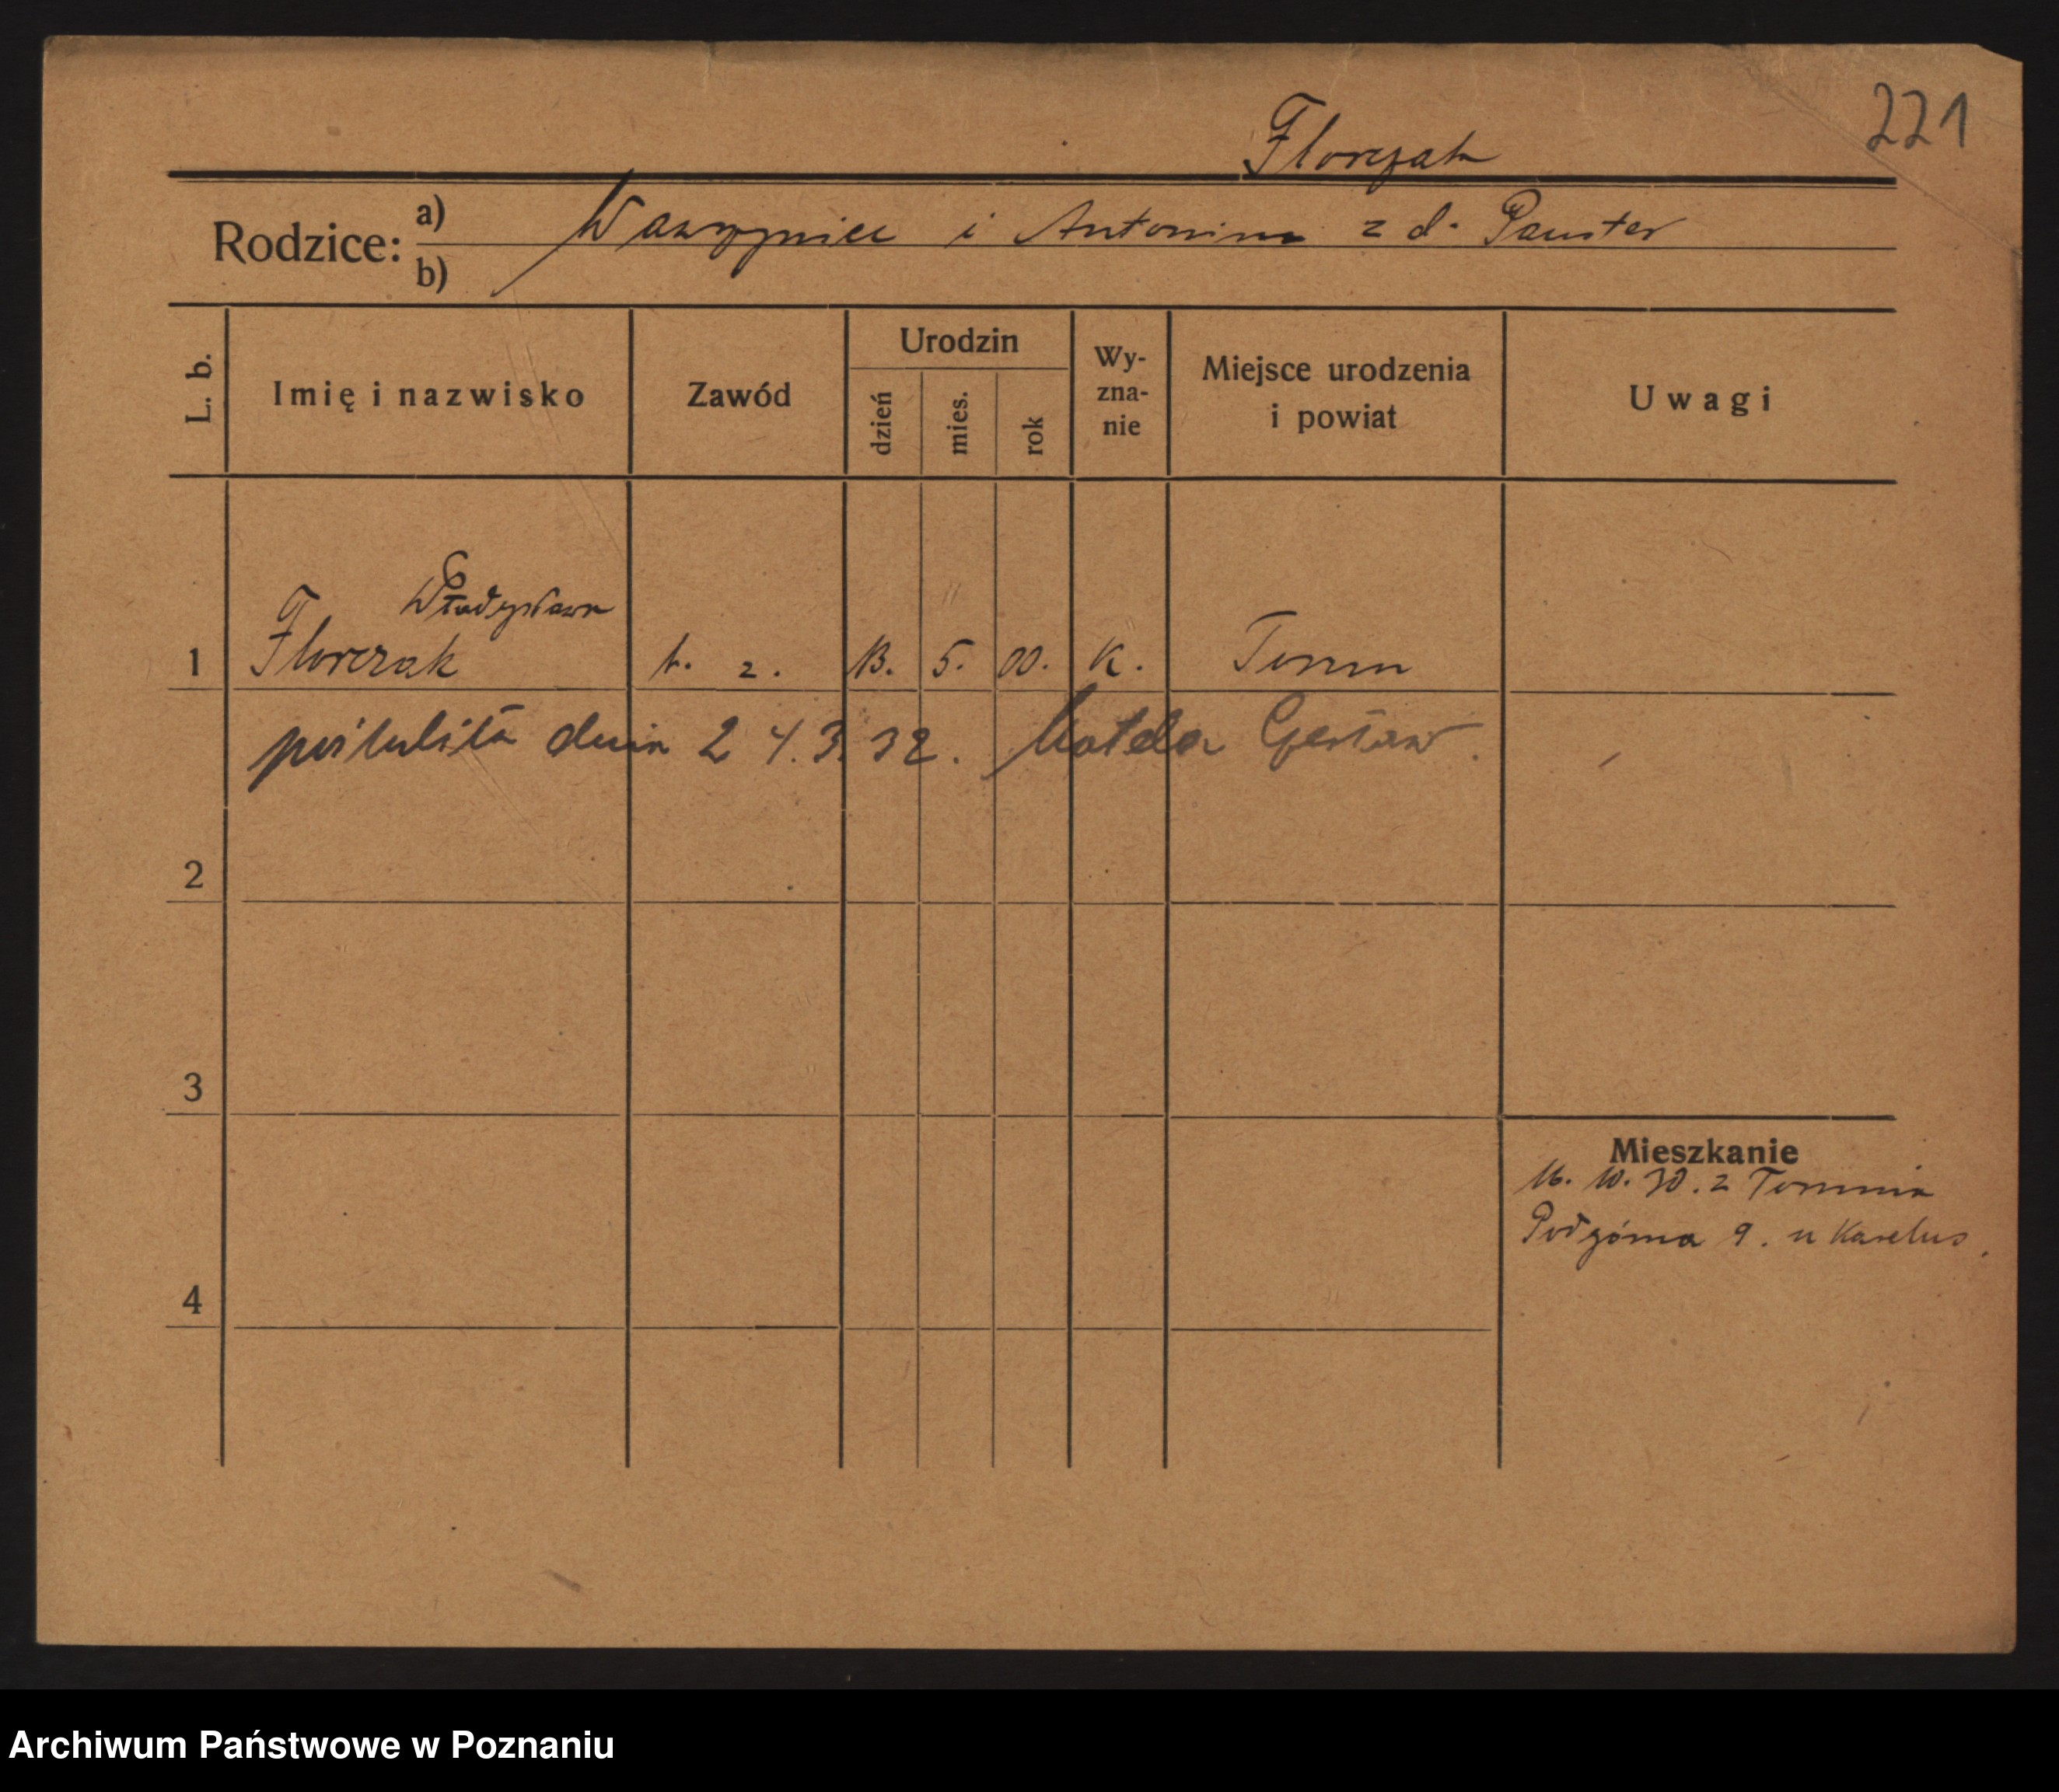 221
Florczak
Rodzice: a) Wawrzyniec i Antonina z d. Pauster
b)
L. b.
Imię i nazwisko
Zawód
Urodzin
dzień
mies.
rok
Wy-
zna-
nie
Miejsce urodzenia
i powiat
Uwagi
Władysława
1 Florczak b. z. 13. 5. 00. K. Toruń
poślubiła dnia 24.3.32. Gustaw.
2
3
4
Mieszkanie
16. 10. 30. z Torunia
Podgórna 9. u
Archiwum Państwowe w Poznaniu